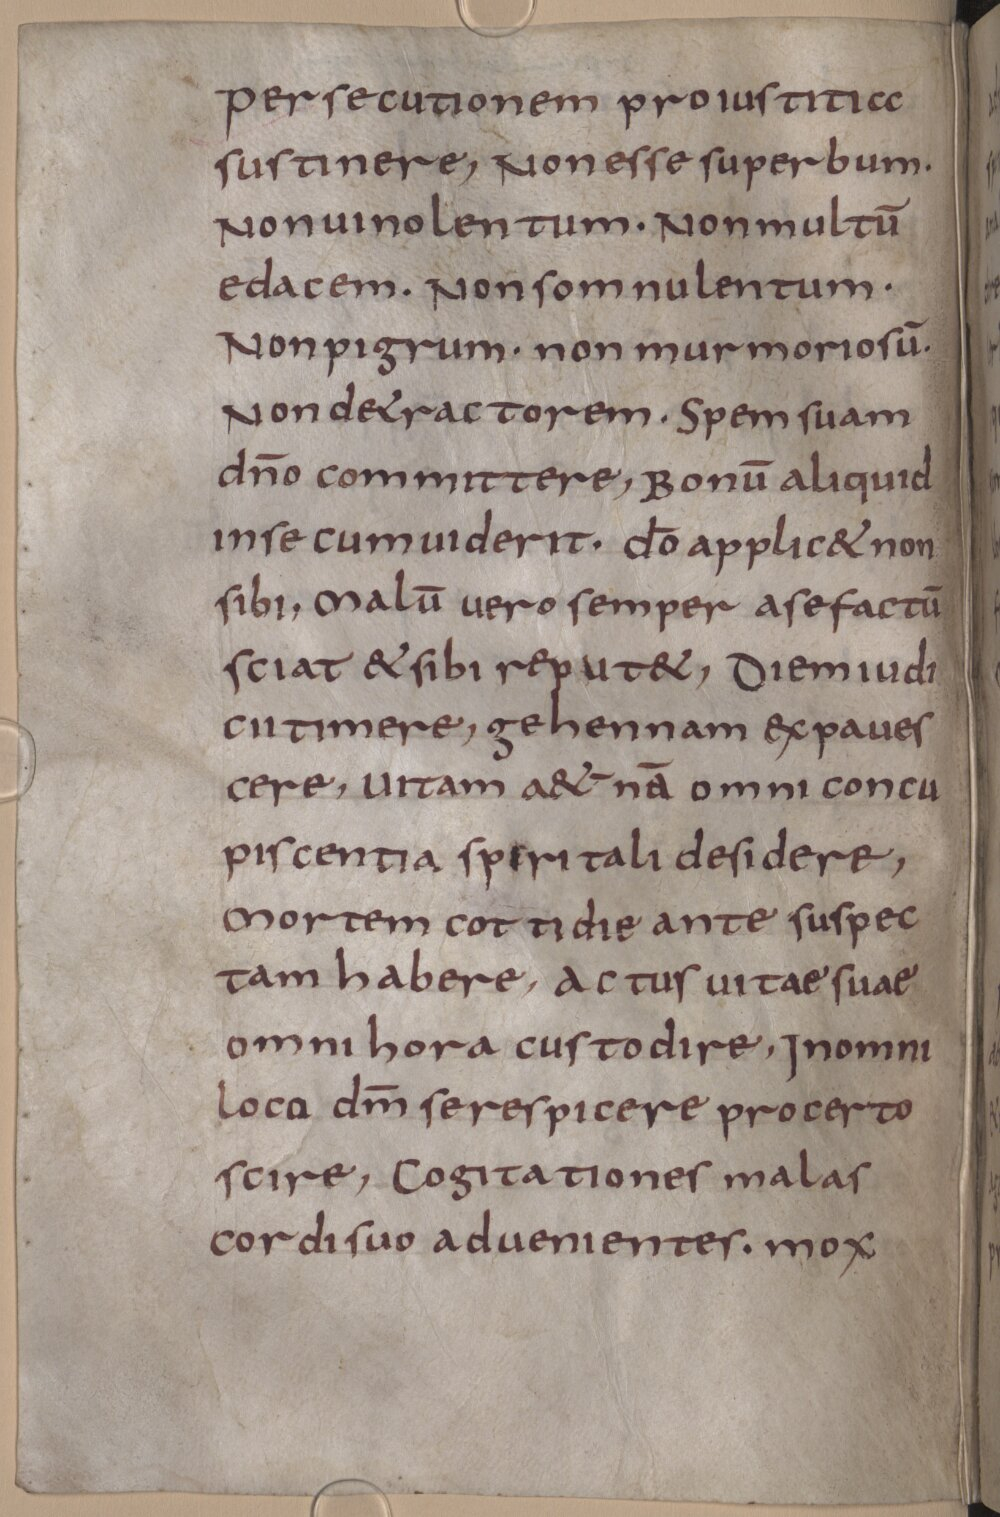 persecutionem pro iustitia
sustinere, Non esse superbum.
Non uinolentum. Non multū
edacem. Non somnulentum.
Non pigrum. non murmoriosū.
Non de&ractorem. Spem suam
dn̄o committere, Bonū aliquid
in se cum uiderit. dō applic& non
sibi, Malū vero semper a se factū
sciat & sibi reput&, Diem iudi
cii timere, gehennam expaues
cere, Uitam a&̄nā omni concu
piscentia spiritali desidere,
Mortem cottidie ante suspec
tam habere, Actus uitae suae
omni hora custodire, In omni
loca dm̄ se respicere pro certo
scire, Cogitationes malas
cordi suo aduenientes. mox